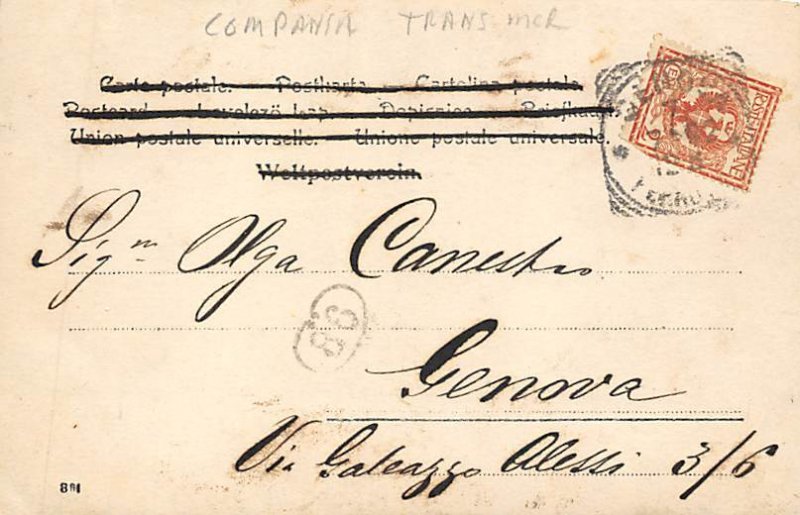 COMPANIA TRANS MER
Carte postale. Postkarte Cartolina postale
Postcard Levelező-lap. Dopisnica Briefkaart
Union postale universelle. Unione postale universale.
Weltpostverein.
POSTE ITALIANE
Sig.na Olga Canestro
86
Genova
Via Galeazzo Alessi 3/6